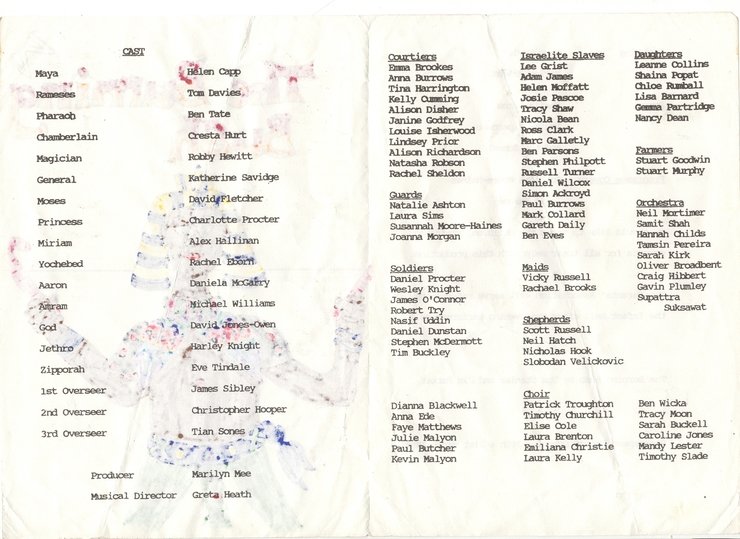 CAST
Maya Helen Capp
Rameses Tom Davies
Pharaoh Ben Tate
Chamberlain Cresta Hurt
Magician Robby Hewitt
General Katherine Savidge
Moses David Fletcher
Princess Charlotte Procter
Miriam Alex Hallinan
Yochebed Rachel Eborn
Aaron Daniela McGarry
Amram Michael Williams
God David Jones-Owen
Jethro Harley Knight
Zipporah Eve Tindale
1st Overseer James Sibley
2nd Overseer Christopher Hooper
3rd Overseer Tian Sones
Producer Marilyn Mee
Musical Director Greta Heath
Courtiers
Emma Brookes
Anna Burrows
Tina Harrington
Kelly Cumming
Alison Disher
Janine Godfrey
Louise Isherwood
Lindsey Prior
Alison Richardson
Natasha Robson
Rachel Sheldon
Guards
Natalie Ashton
Laura Sims
Susannah Moore-Haines
Joanna Morgan
Soldiers
Daniel Procter
Wesley Knight
James O'Connor
Robert Try
Nasif Uddin
Daniel Dunstan
Stephen McDermott
Tim Buckley
Israelite Slaves
Lee Grist
Adam James
Helen Moffatt
Josie Pascoe
Tracy Shaw
Nicola Bean
Ross Clark
Marc Galletly
Ben Parsons
Stephen Philpott
Russell Turner
Daniel Wilcox
Simon Ackroyd
Paul Burrows
Mark Collard
Gareth Daily
Ben Eves
Maids
Vicky Russell
Rachael Brooks
Shepherds
Scott Russell
Neil Hatch
Nicholas Hook
Slobodan Velickovic
Daughters
Leanne Collins
Shaina Popat
Chloe Rumball
Lisa Barnard
Gemma Partridge
Nancy Dean
Farmers
Stuart Goodwin
Stuart Murphy
Orchestra
Neil Mortimer
Samit Shah
Hannah Childs
Tamsin Pereira
Sarah Kirk
Oliver Broadbent
Craig Hibbert
Gavin Plumley
Supattra
Suksawat
Choir
Dianna Blackwell Patrick Troughton Ben Wicka
Anna Ede Timothy Churchill Tracy Moon
Faye Matthews Elise Cole Sarah Buckell
Julie Malyon Laura Brenton Caroline Jones
Paul Butcher Emiliana Christie Mandy Lester
Kevin Malyon Laura Kelly Timothy Slade